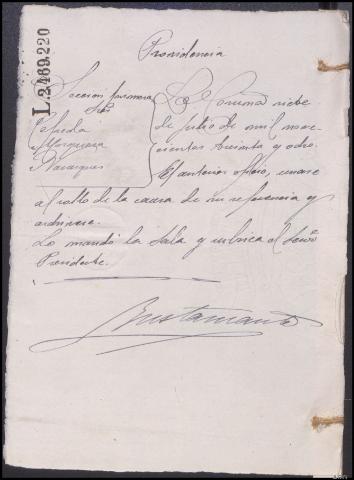 L.2469,220
Providencia
Seccion primera
Sres
Cepeda
Marquina
La Coruña siete
de julio de mil nove-
cientos treinta y ocho.
El anterior oficio, unase
al rollo de la causa de su referencia y
archivese.
Lo mandó la Sala y rubrica el Señor
Presidente.
Bustamante